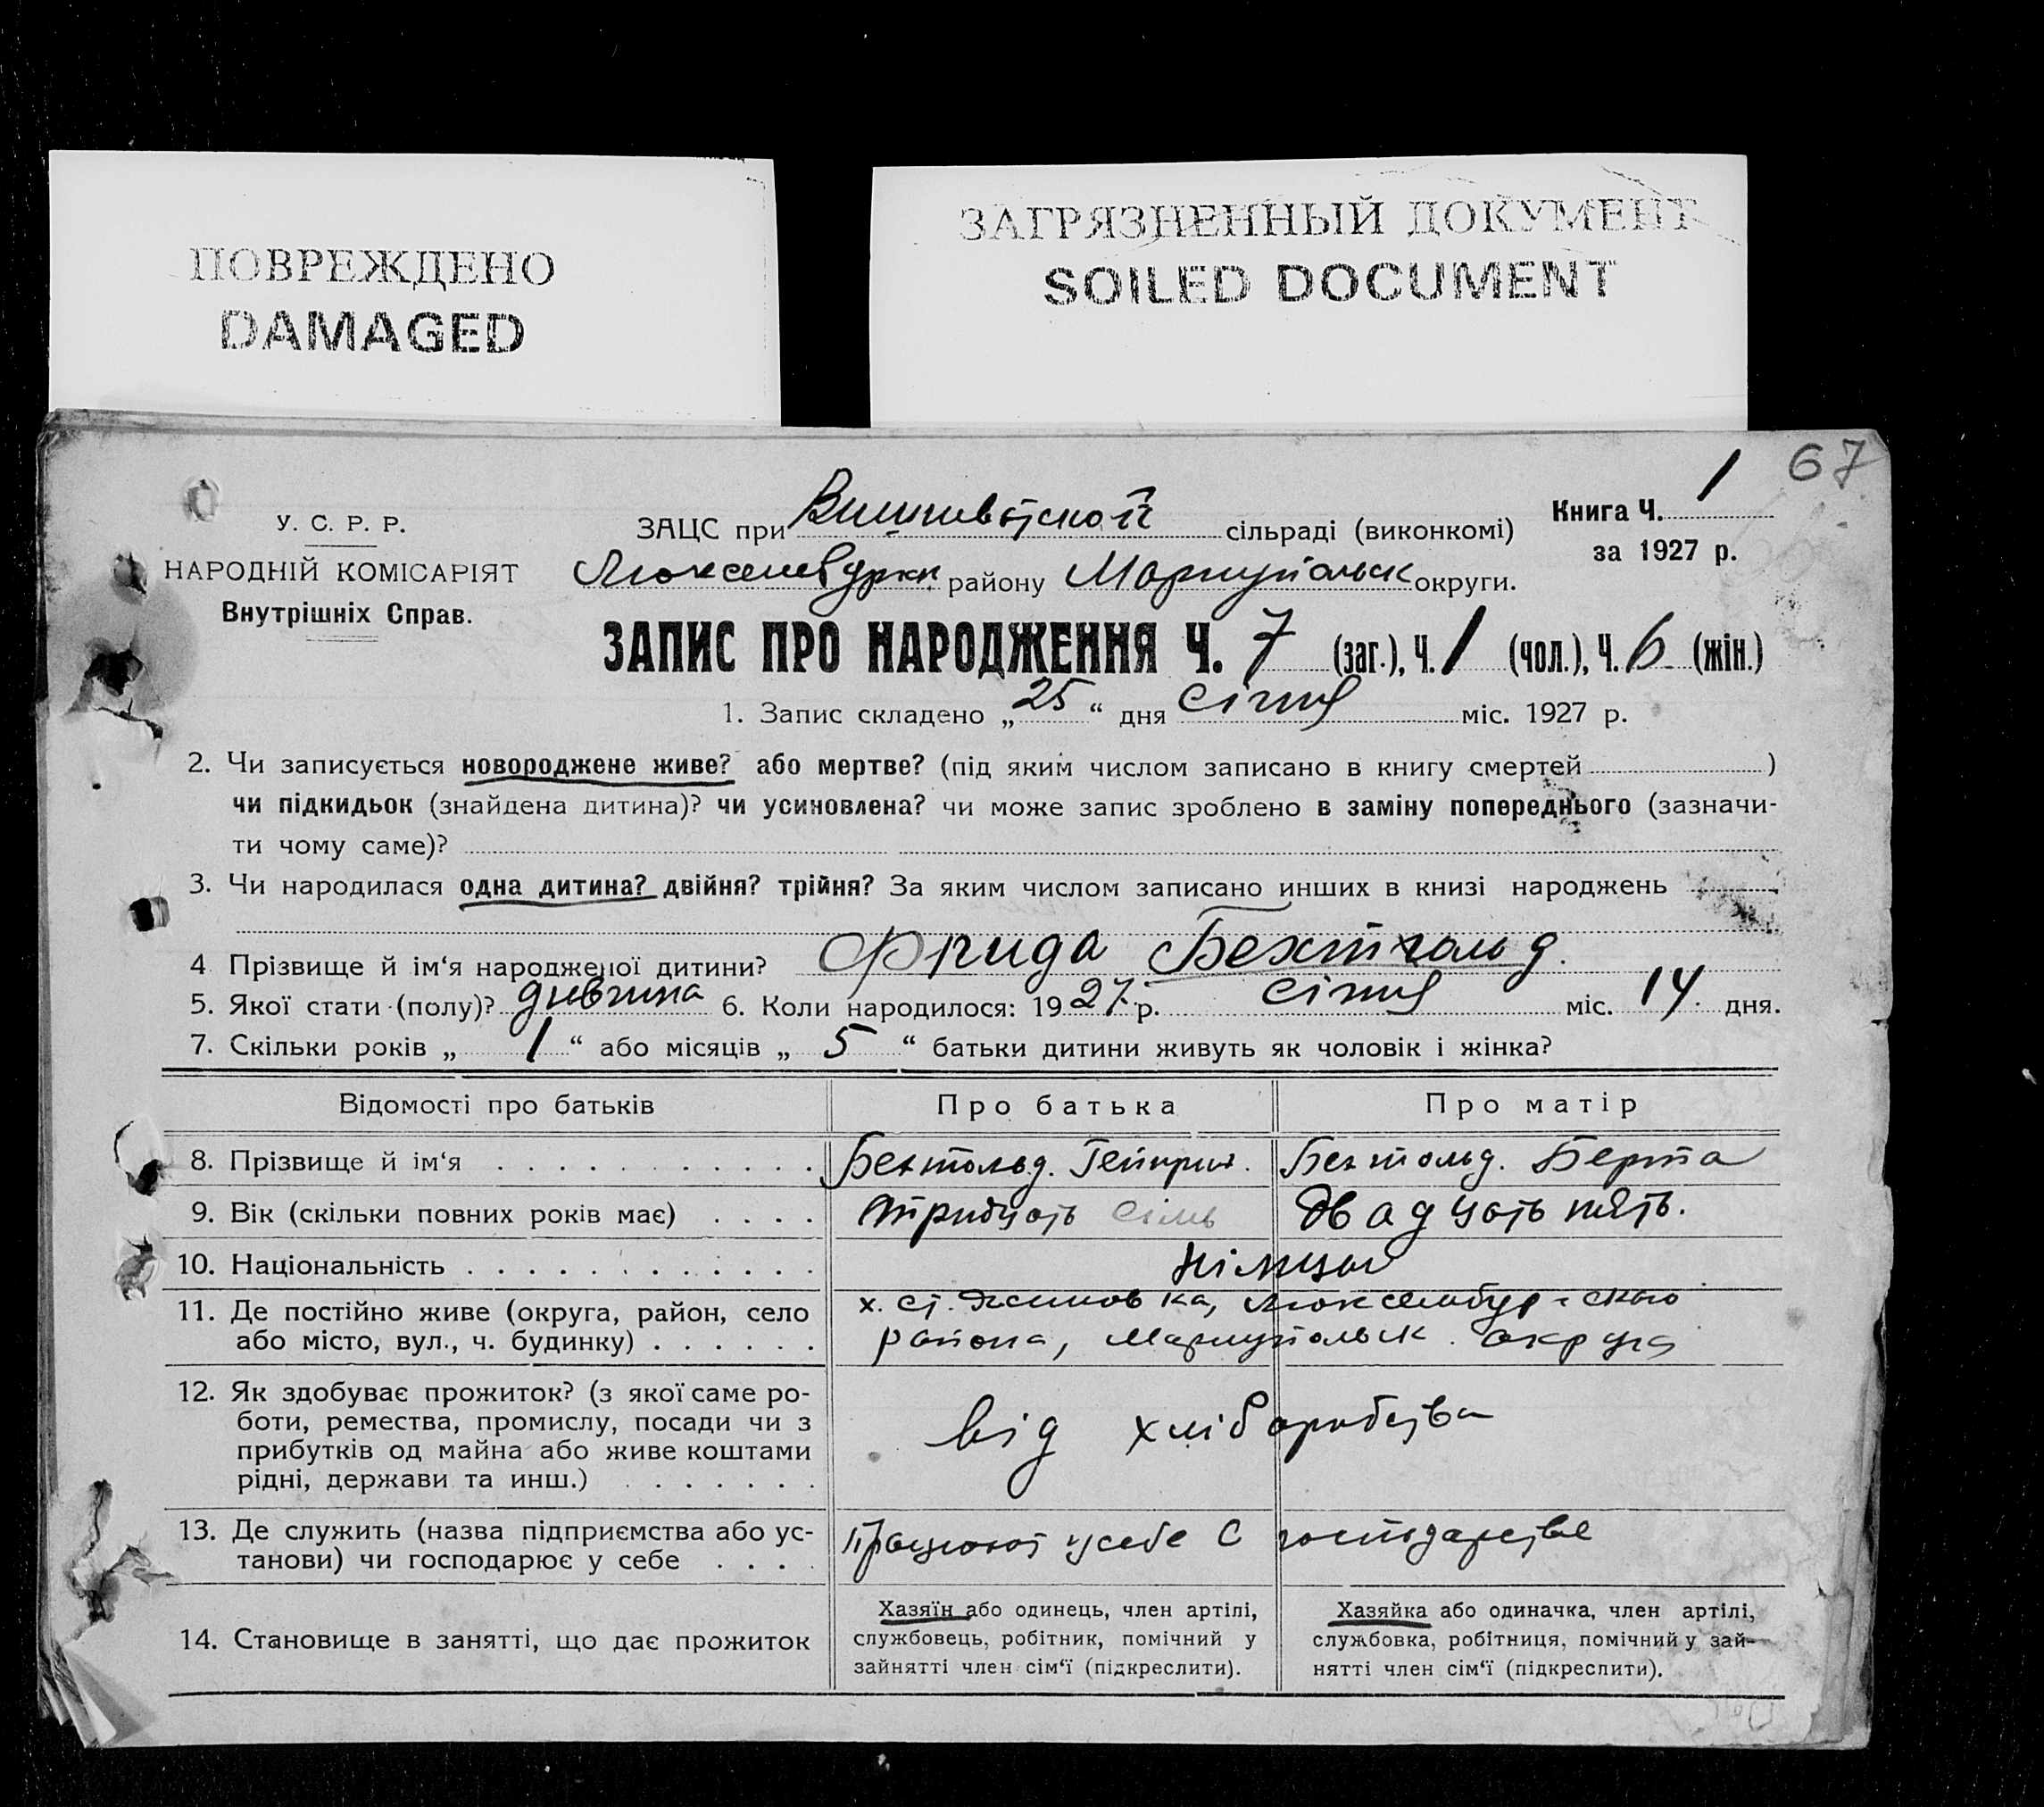 ПОВРЕЖДЕНО
DAMAGED
ЗАГРЯЗНЕННЫЙ ДОКУМЕНТ
SOILED DOCUMENT
67
У. С. Р. Р.
НАРОДНІЙ КОМІСАРІЯТ
Внутрішніх Справ.
ЗАЦС при сільраді (виконкомі)
Люксембурзк району Маріупольск округи.
Книга Ч. 1
за 1927 р.
ЗАПИС ПРО НАРОДЖЕННЯ Ч. 7 (заг.), Ч. 1 (чол.), Ч. 6 (жін.)
1. Запис складено „25“ дня січня міс. 1927 р.
2. Чи записується новороджене живе? або мертве? (під яким числом записано в книгу смертей )
чи підкидьок (знайдена дитина)? чи усиновлена? чи може запис зроблено в заміну попереднього (зазначи-
ти чому саме)?
3. Чи народилася одна дитина? двійня? трійня? За яким числом записано инших в книзі народжень
4 Прізвище й ім‘я народженої дитини? Фрида Бехтгольд.
5. Якої стати (полу)? дивчина 6. Коли народилося: 1927 р. січня міс. 14 дня.
7. Скільки років „1“ або місяців „5“ батьки дитини живуть як чоловік і жінка?
Відомості про батьків Про батька Про матір
8. Прізвище й ім‘я Бехтольд. Гейнрих. Бехтольд. Берта
9. Вік (скільки повних років має) Тридцать сімь Двадцать пять.
10. Національність німцы
11. Де постійно живе (округа, район, село
або місто, вул., ч. будинку)
х. ст. Люксембургскаго
района, Мариупольск. округа
12. Як здобуває прожиток? (з якої саме ро-
боти, ремества, промислу, посади чи з
прибутків од майна або живе коштами
рідні, держави та инш.)
від хліборобства
13. Де служить (назва підприємства або ус-
танови) чи господарює у себе
Працюют усебе С господарстве
14. Становище в занятті, що дає прожиток
Хазяїн або одинець, член артілі,
службовець, робітник, помічний у
зайнятті член сім‘ї (підкреслити).
Хазяйка або одиначка, член артілі,
службовка, робітниця, помічний у зай-
нятті член сім‘ї (підкреслити).